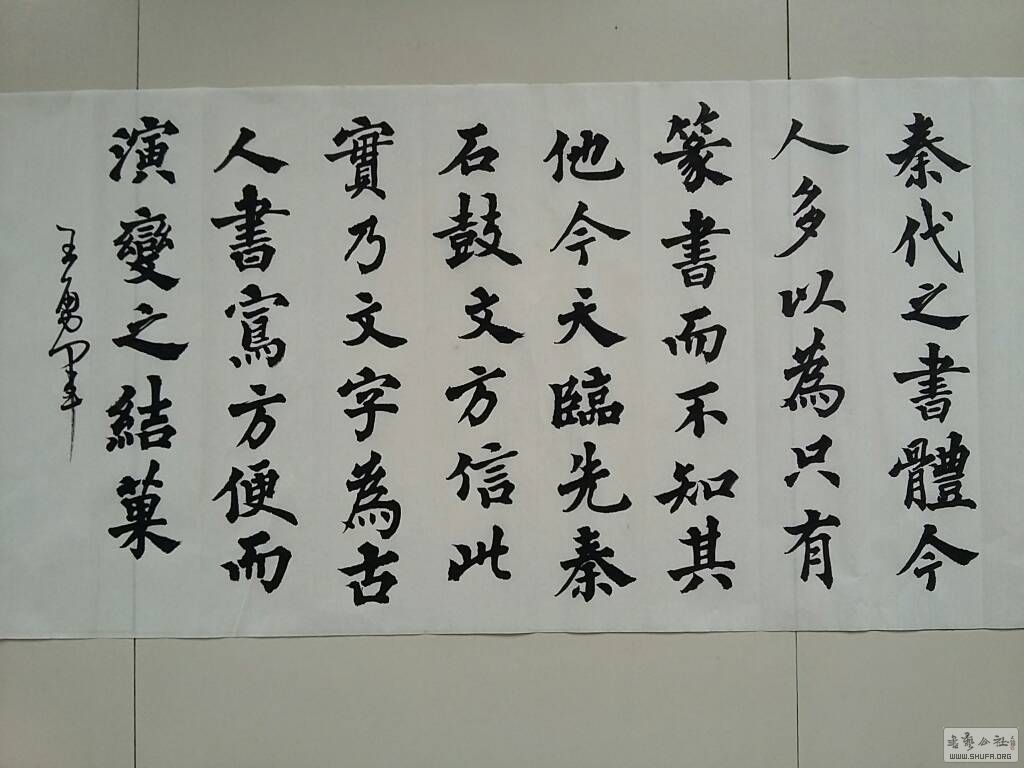 秦代之書體今
人多以為只有
篆書而不知其
他今天臨先秦
石鼓文方信此
實乃文字為古
人書寫方便而
演變之結菓
王勇军
書藝公社
WWW.SHUFA.ORG